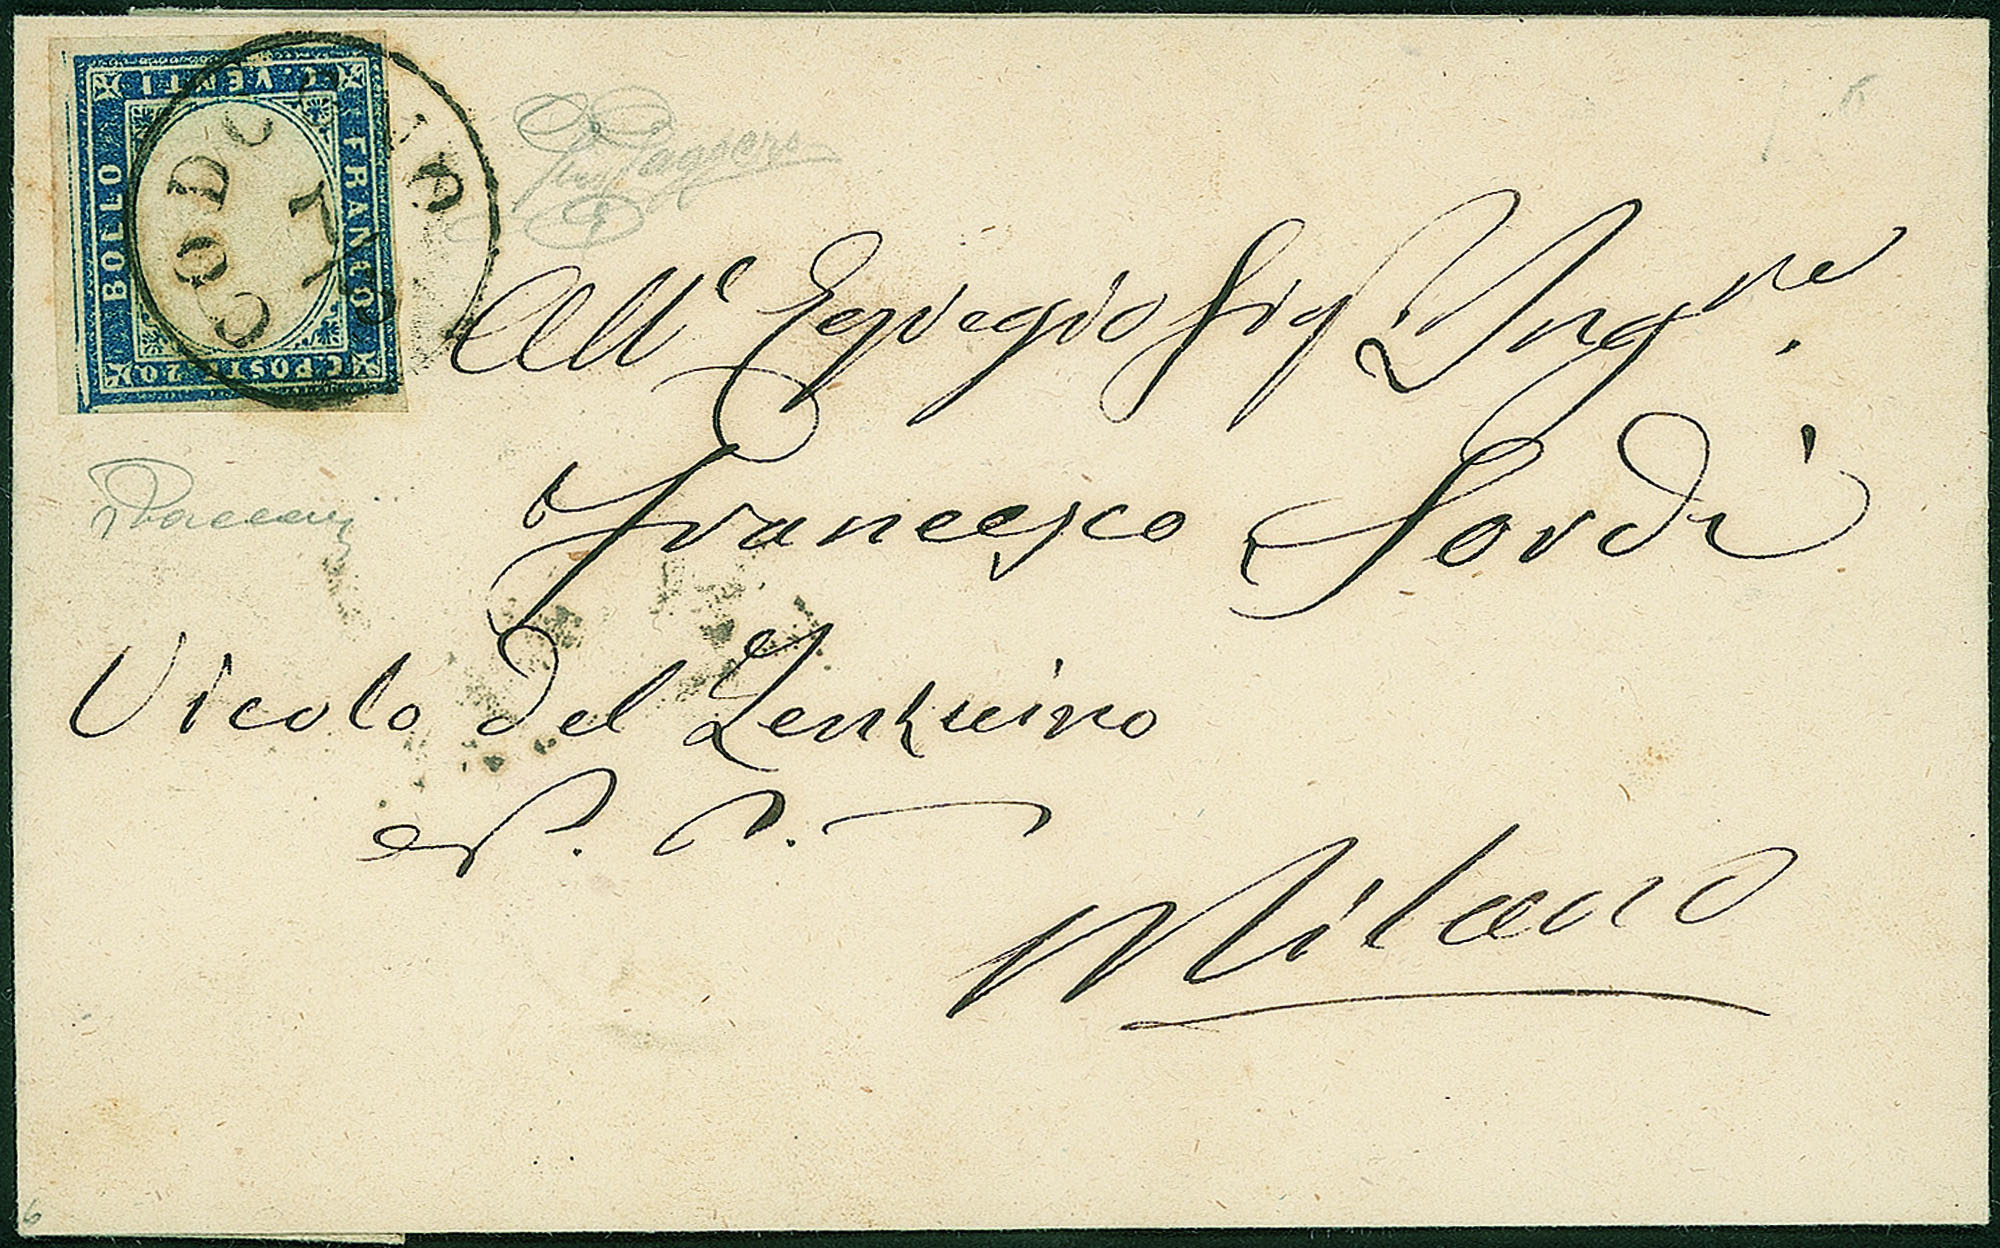 C. VENTI
BOLLO
FRANCO
C. POSTE 20
CODOGNO
All' Egregio Sig Ing.re
Francesco Sordi
Vicolo del Zenzuino
Milano
6